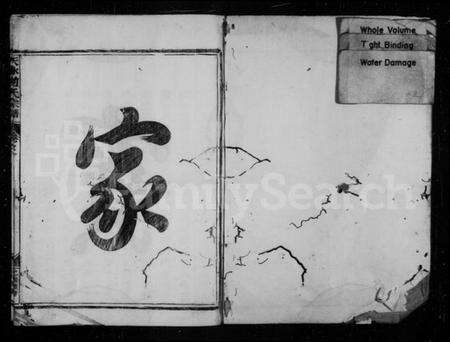 Whole Volume
Tight Binding
Water Damage
家
FamilySearch